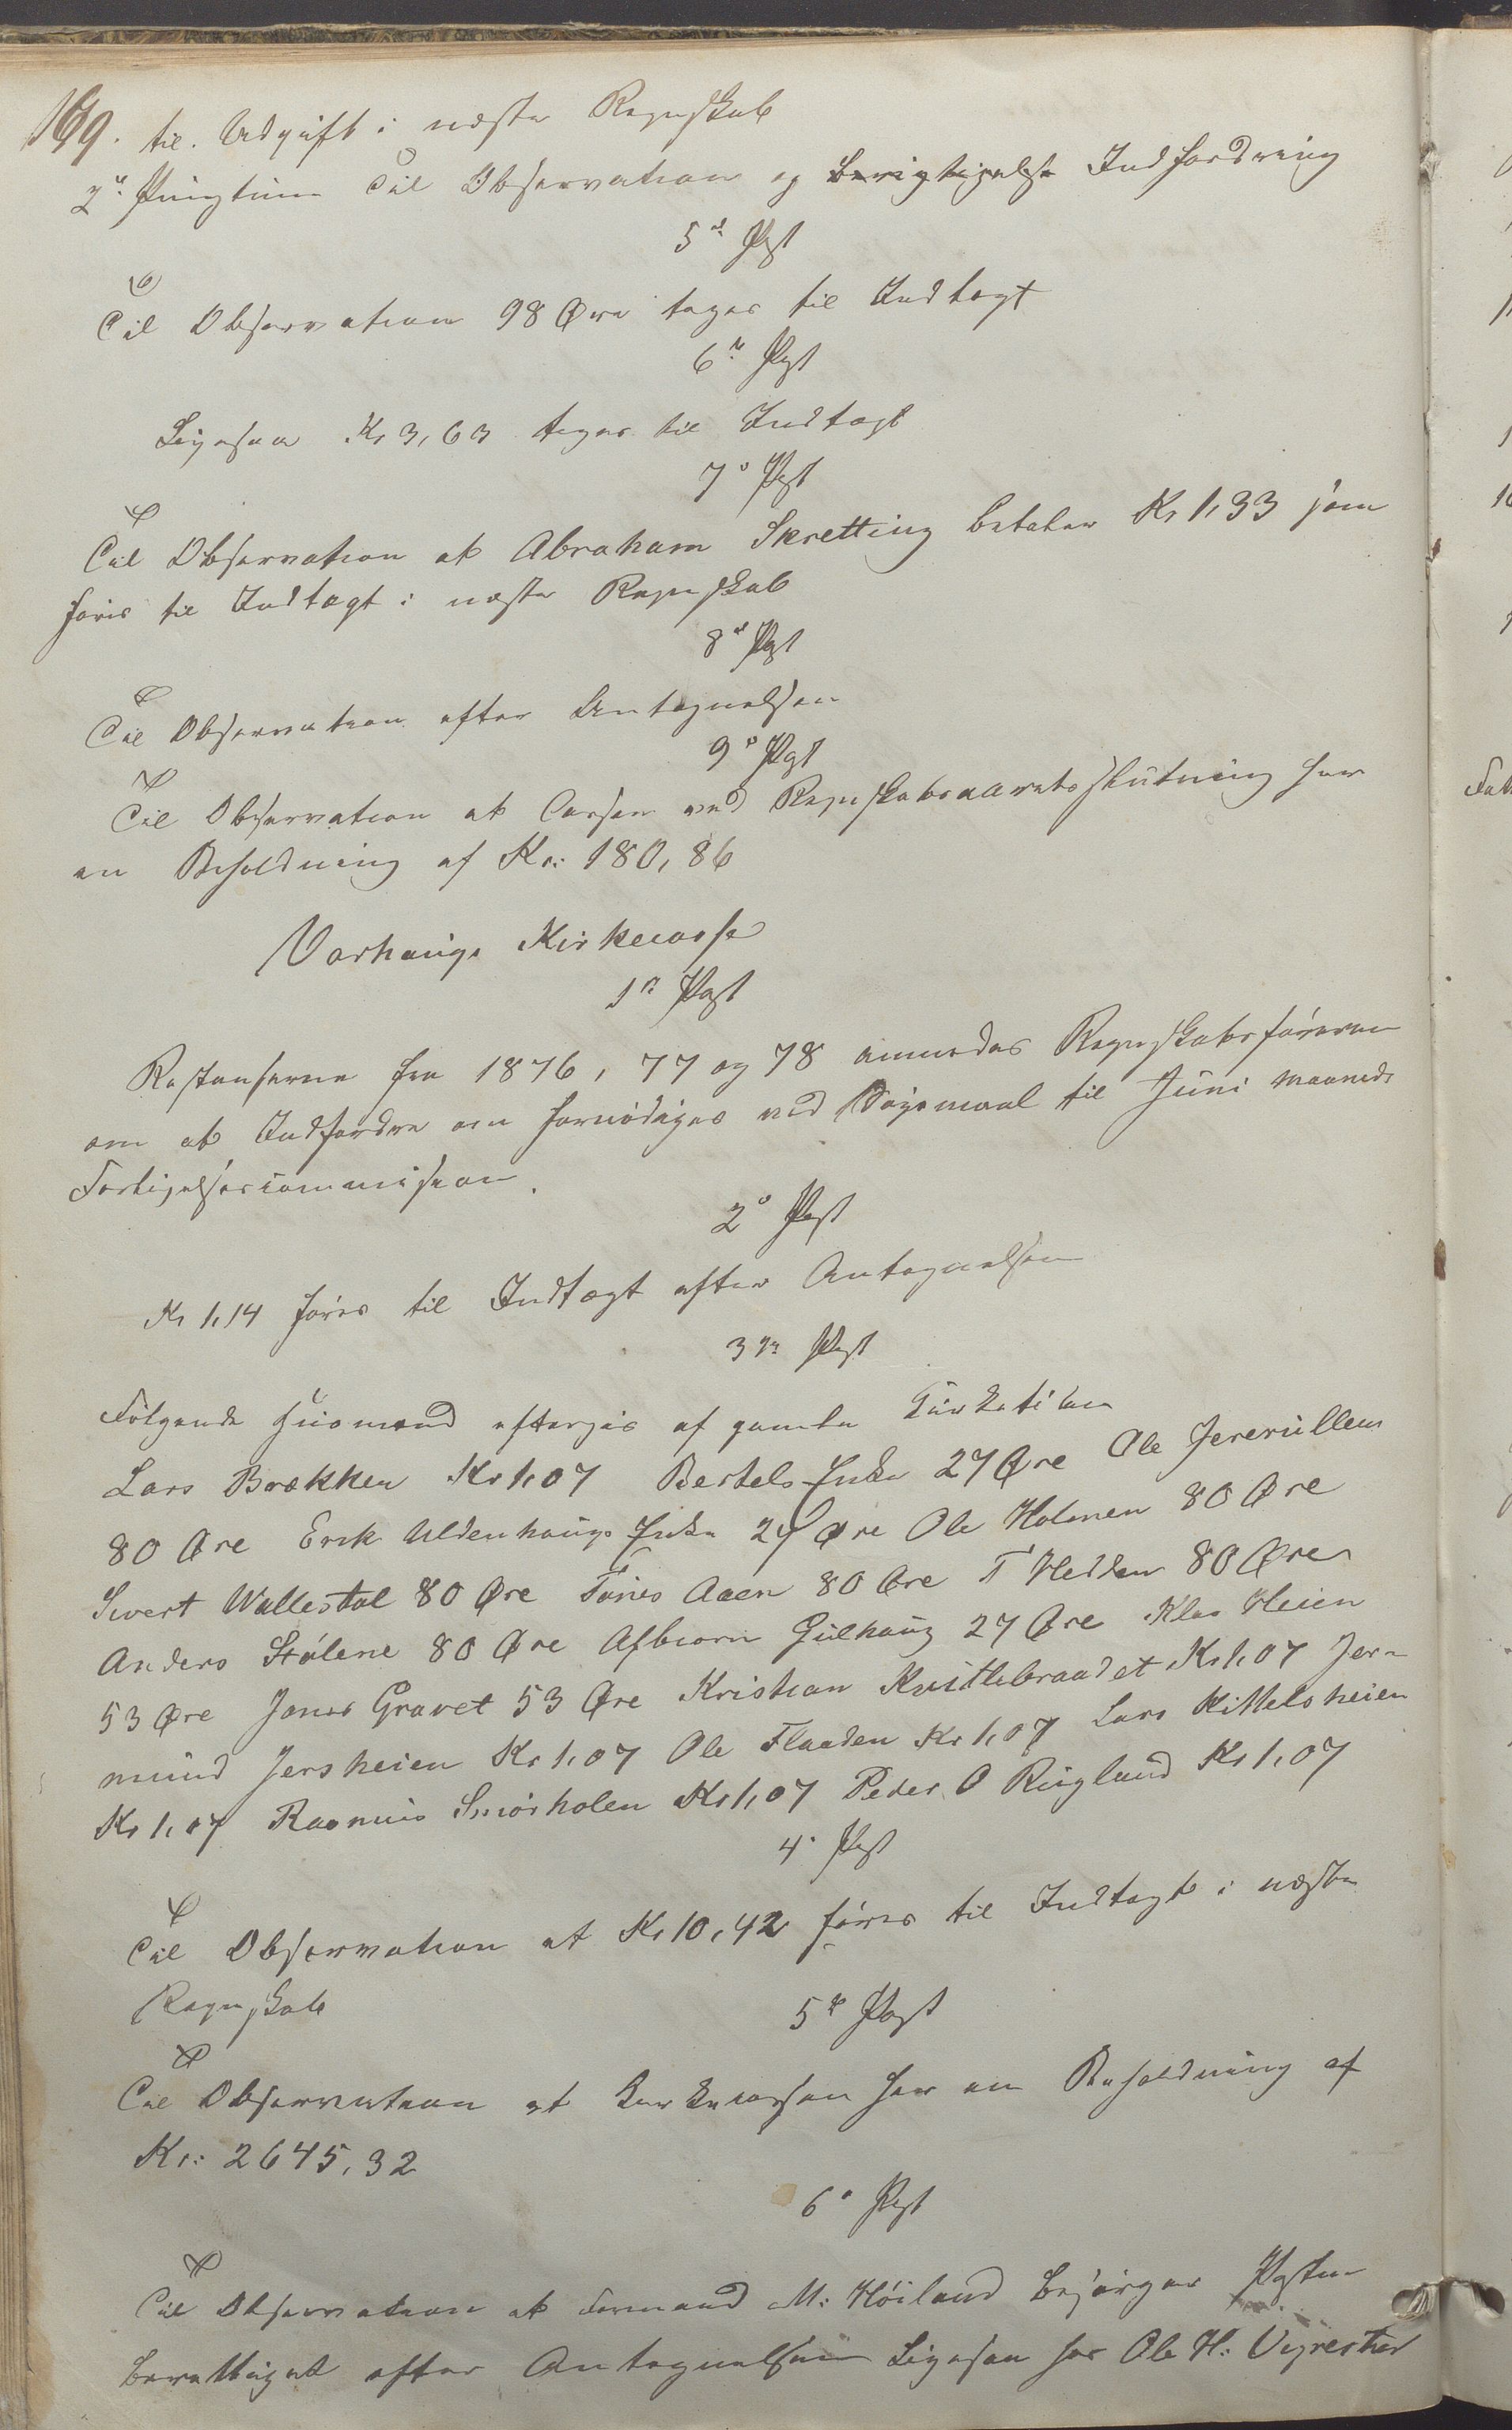 169. til Udgift i næste Regnskab
2d Pungtum Til Observation og berigtigelse Indfordring
5te Post
Til Observation 98 Øre tages til Indtægt
6te Post
Ligesaa Kr 3,63 tages til Indtægt
7de Post
Til Observation at Abraham Skretting betaler Kr 1,33 som
føres til Indtægt i næste Regnskab
8de Post
Til Observation efter Antegnelsen
9de Post
Til Observation at Cassen ved Regnskabsaarets slutning har
en Beholdning af Kr: 180,86
Varhaugs Kirkecasse
1ste Post
Restanserne fra 1876, 77 og 78 anmodes Regnskabsføreren
om at Indfordre om fornødiges ved Søgsmaal til Juni maaneds
Forligelsescommission.
2de Post
Kr 1,14 føres til Indtægt efter Antegnelsen
3die Post
Følgende Husmænd eftergis af gamle
Lars Brækken Kr 1,07 Bertels Enke 27 Øre Ole
80 Øre Erik Uldenhaugs Enke 27 Øre Ole Holmen 80 Øre
Sivert Wallestøl 80 Øre Tønes Aaen 80 Øre T Hedden 80 Øre
Anders Stølene 80 Øre Asbiørn Gulhaug 27 Øre Klas Heien
53 Øre Jonas Gravet 53 Øre Kristian Kvitlebraadet Kr 1,07 Jer-
mund Jersheien Kr 1,07 Ole Flaaden Kr 1,07 Lars Kittelsheien
Kr 1,07 Rasmus Smørholen Kr 1,07 Peder O Ringland Kr 1,07
4de Post
Til Observation at Kr 10,42 føres til Indtægt i næste
Regnskab
5te Post
Til Observation at Kirkecassen har en Beholdning af
Kr: 2645,32
6te Post
Til Observation at Formand M: Høiland besørger Posten
berettiget efter Antegnelsen Ligesaa for Ole H: Vigrestad